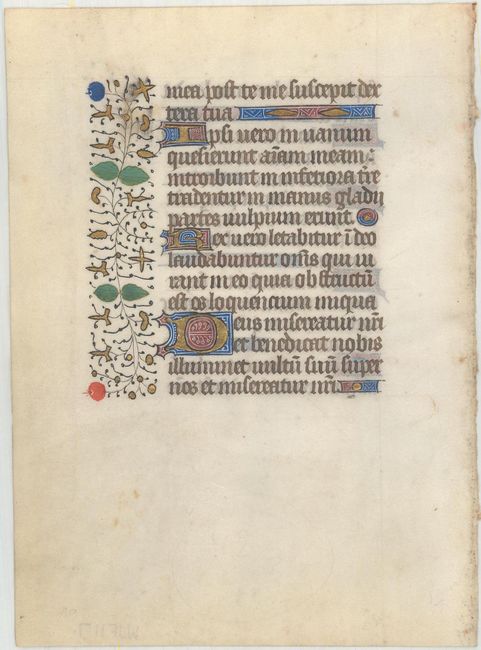 mea post te me suscepit dex
tera tua
Ipsi vero in vanum
quesierunt aīam meam:
introibunt in inferiora t̄re
tradentur in manus gladii
partes vulpium erunt.
Rex vero letabitur ī deo
laudabuntur om̄s qui iu
rant in eo quia obstructū
est os loquencium iniqua
Deus misereatur nr̄i
et benedicat nobis
illuminet vultū suū super
nos et misereatur nr̄i